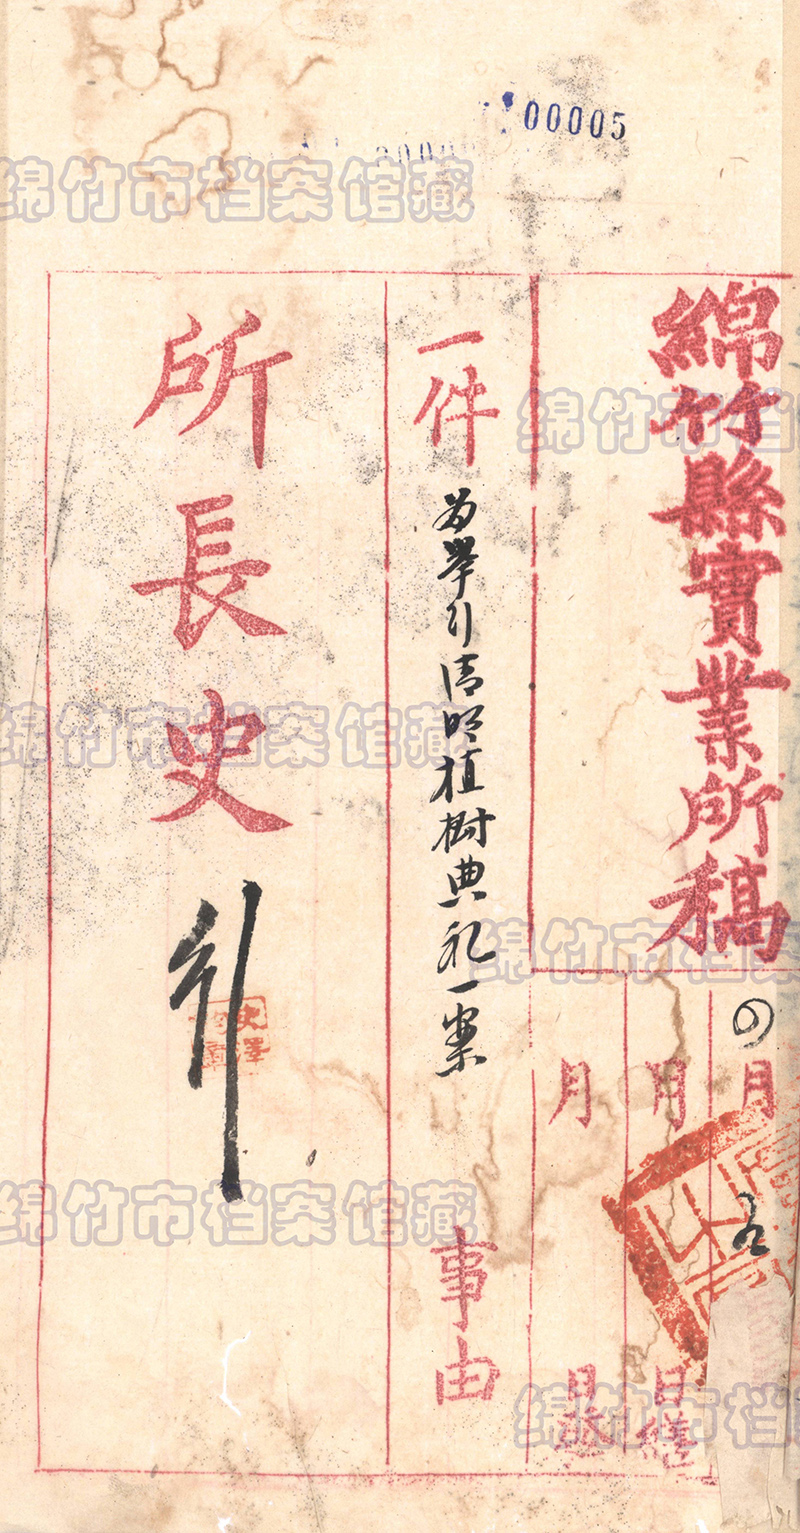 00005
綿竹縣實業所稿
四月
月
日繕
月
日
一件
为舉行清明植樹典礼一案
事由
所長史
行
绵竹市档案馆藏
绵竹市档案馆藏
绵竹市档案馆藏
绵竹市档案
绵竹市档案馆藏
绵竹市档